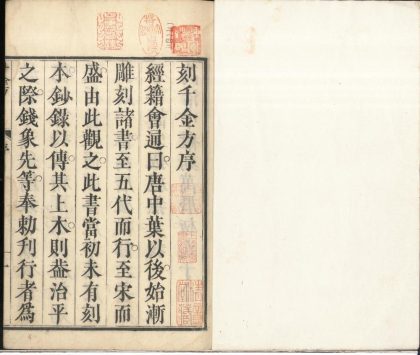 刻千金方序
經籍會通曰唐中葉以後始漸
雕刻諸書至五代而行至宋而
盛由此觀之此書當初未有刻
本鈔錄以傳其上木則盖治平
之際錢象先等奉勅刊行者爲